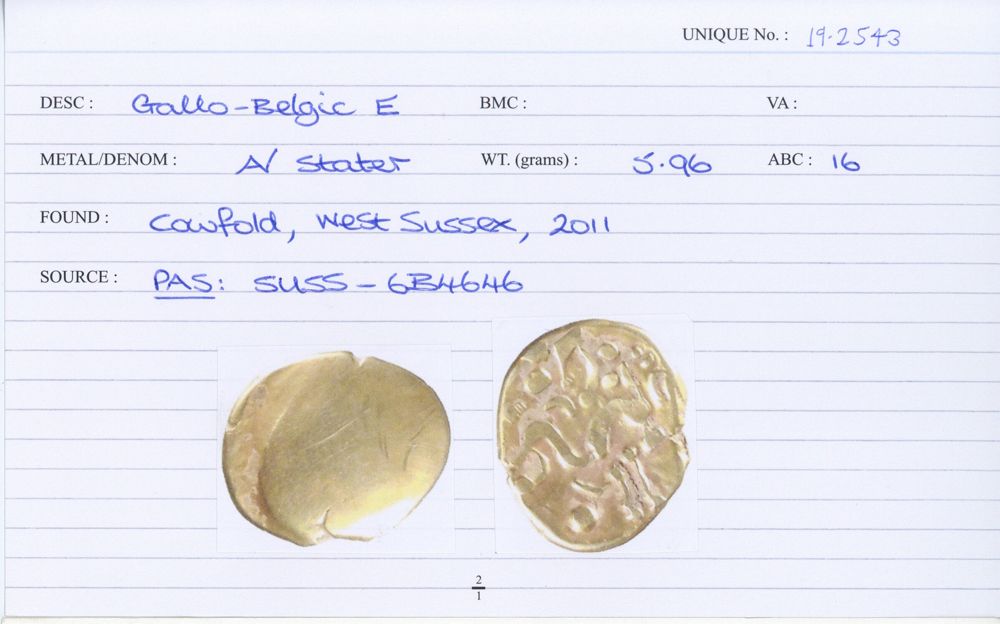 UNIQUE No. : 19.2543
DESC : Gallo-Belgic E BMC : VA :
METAL/DENOM : A/ Stater WT. (grams) : 5.96 ABC : 16
FOUND : Cowfold, West Sussex, 2011
SOURCE : PAS: SUSS-6B4646
2
1